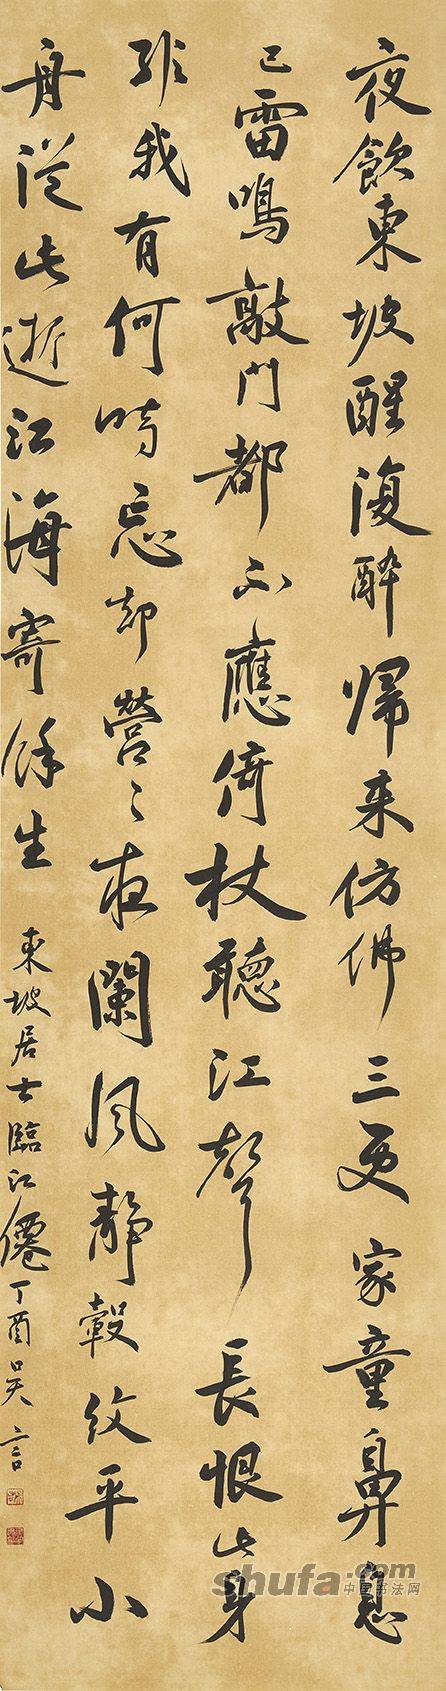 夜飲東坡醒復醉歸来仿佛三更家童鼻息
已雷鳴敲門都不應倚杖聽江聲長恨此身
非我有何時忘却營〻夜闌風靜縠紋平小
舟從此逝江海寄餘生
東坡居士臨江僊丁酉吴言
shufa.com
中国书法网